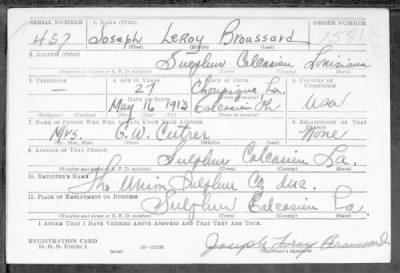 SERIAL NUMBER 1. NAME (Print) ORDER NUMBER
437 Joseph LeRoy Broussard
(First) (Middle) (Last)
2. ADDRESS (Print)
Sulphur Calcasieu Louisiana
(Number and street or R. F. D. number) (Town) (County) (State)
3. TELEPHONE 4. AGE IN YEARS 5. PLACE OF BIRTH 6. COUNTRY OF CITIZENSHIP
— 27 La.
DATE OF BIRTH (Town or county)
May 16 1913 Calcasieu Ph USA
(Exchange) (No.) (Mo.) (Day) (Yr.) (State or country)
7. NAME OF PERSON WHO WILL ALWAYS KNOW YOUR ADDRESS 8. RELATIONSHIP OF THAT PERSON
Mrs. G. W. None
(Mr., Mrs., Miss) (First) (Middle) (Last)
9. ADDRESS OF THAT PERSON
Sulphur Calcasieu La.
(Number and street or R. F. D. number) (Town) (County) (State)
10. EMPLOYER'S NAME
The Union Sulphur Co, Inc.
11. PLACE OF EMPLOYMENT OR BUSINESS
Sulphur Calcasieu La.
(Number and street or R. F. D. number) (Town) (County) (State)
I AFFIRM THAT I HAVE VERIFIED ABOVE ANSWERS AND THAT THEY ARE TRUE.
REGISTRATION CARD
D. S. S. Form 1 (over) 16—17105 Joseph Leroy Broussard
(Registrant's signature)